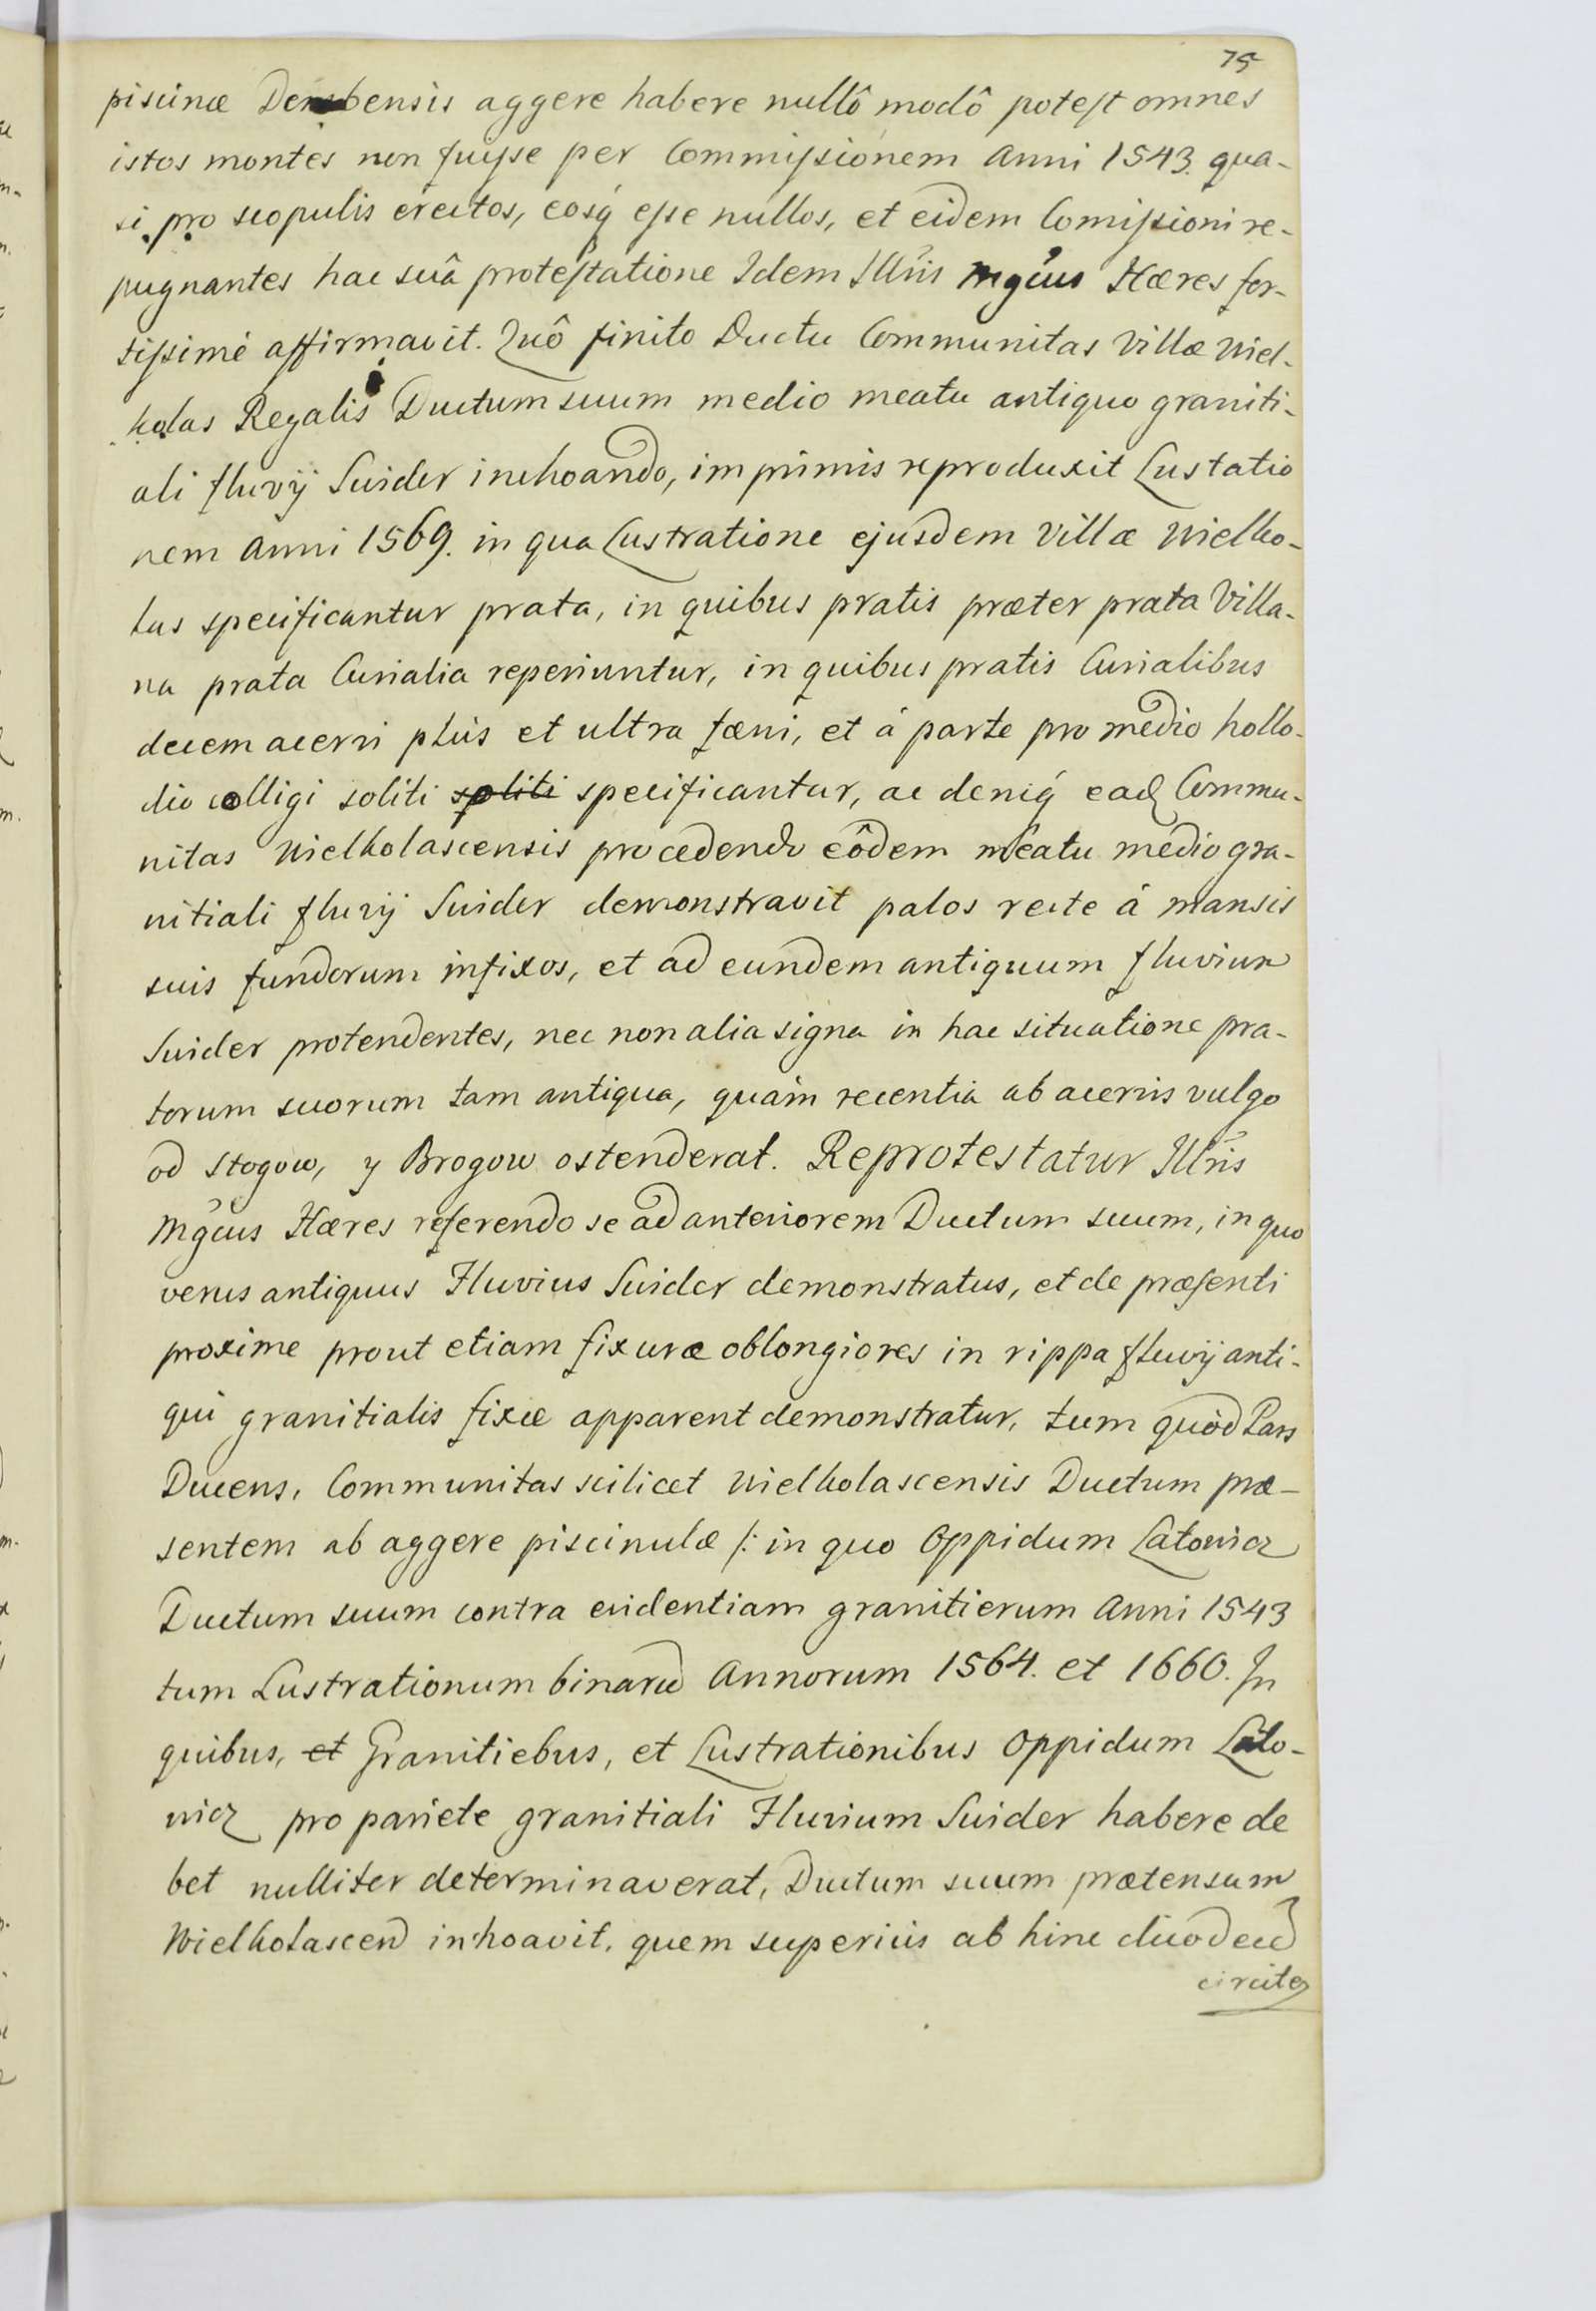 75
piscinæ Dembensis aggere habere nullô modô potest omnes
istos montes non fuisse per Commissionem Anni 1543. qua-
si pro scopulis erectos, eosq́ esse nullos, et eidem Comissioni re-
pugnantes hac suâ protestatione Idem Illris Mgcus Hæres for-
tissimè affirmavit. Quô finito Ductu Communitas Villæ Wiel-
kolas Regalis Ductum suum medio meatu antiquo graniti-
ali fluvÿ Swider inchoando, imprimis reproduxit Lustatio
nem Anni 1569. in qua Lustratione ejusdem Villæ Wielko-
las specificantur prata, in quibus pratis præter prata Villa-
na prata Curialia reperiuntur, in quibus pratis Curialibus
decem acervi plùs et ultra fæni, et à parte pro medio hollo-
dio colligi soliti soliti specificantur, ac deniq́ ead Commu-
nitas Wielkolascensis procedendo eôdem meatu medio gra-
nitiali fluvÿ Swider demonstravit palos recte à mansis
suis fundorum infixos, et ad eundem antiquum fluvium
Swider protendentes, nec non alia signa in hac situatione pra-
torum suorum tam antiqua, quàm recentia ab acervis vulgo
od Stogow, y Brogow ostenderat. Reprotestatur Illris
Mgcus Hæres referendo se ad anteriorem Ductum suum, in quo
verus antiquus Fluvius Swider demonstratus, et de præsenti
proxime prout etiam fixuræ oblongiores in rippa fluvÿ anti-
qui granitialis fixæ apparent demonstratur, tum quòd Pars
Ducens, Communitas scilicet Wielkolascensis Ductum præ-
sentem ab aggere piscinulæ /: in quo Oppidum Latowicz
Ductum suum contra evidentiam granitierum Anni 1543
tum Lustrationum binaru Annorum 1564. et 1660. In
quibus, et Granitiebus, et Lustrationibus Oppidum Lato-
wicz pro pariete granitiali Fluvium Swider habere de
bet nulliter determinaverat, Ductum suum prætensum
Wielkolascen inhoavit, quem superiùs ab hinc duodec
circiter